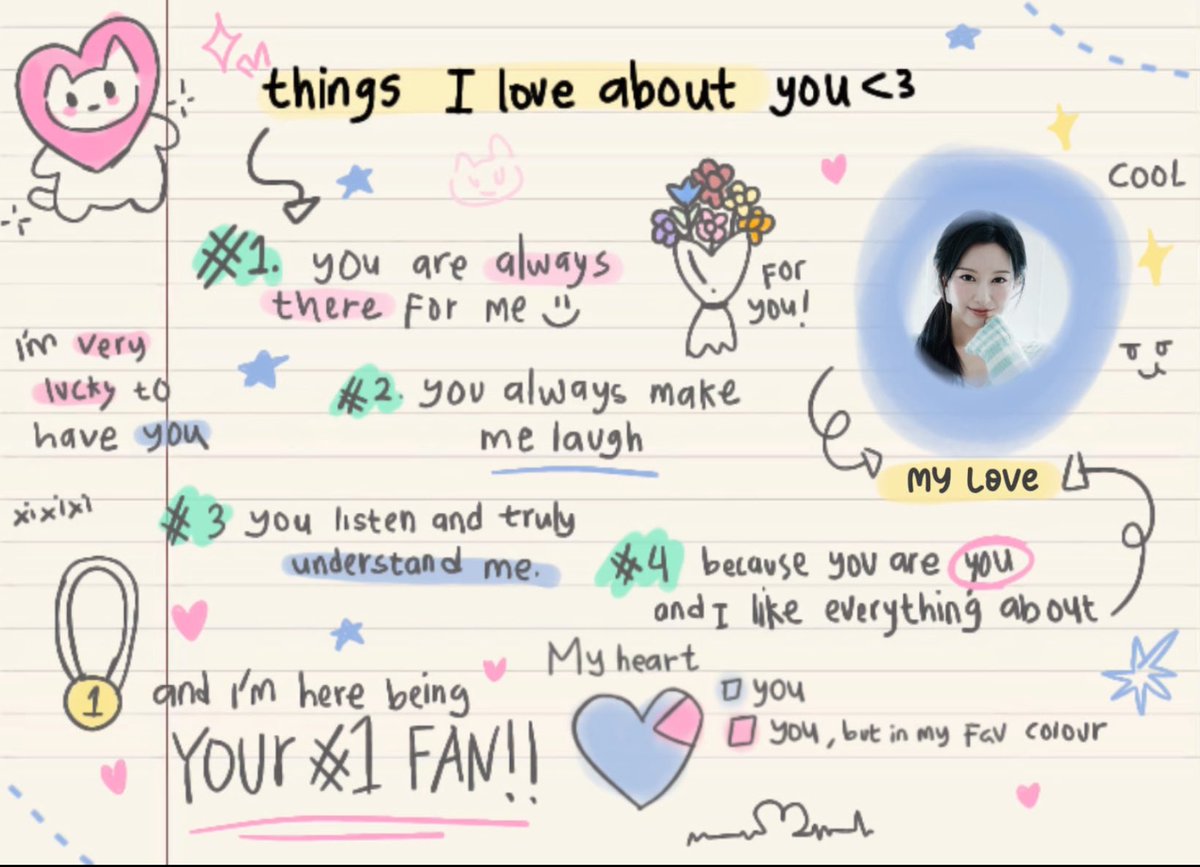 things I love about you<3
COOL
#1. you are always
there for me
FOR
you!
i'm very
lucky to
have you
#2. you always make
me laugh
MY LOVE
xixixixi
#3 you listen and truly
understand me.
#4 because you are you
and I like everything about
My heart
you
you, but in my Fav colour
1
and i'm here being
YOUr #1 FAN!!